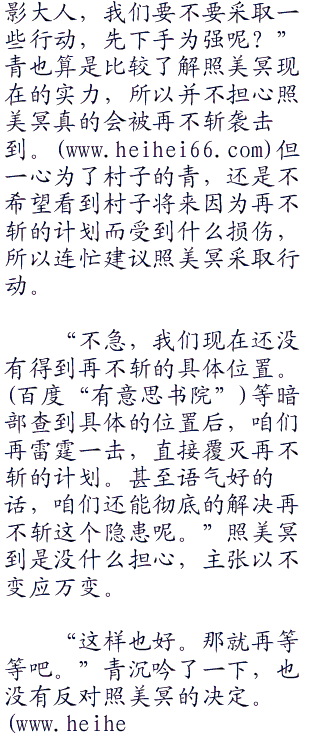 影大人，我们要不要采取一
些行动，先下手为强呢？”
青也算是比较了解照美冥现
在的实力，所以并不担心照
美冥真的会被再不斩袭击
到。(www.heihei66.com)但
一心为了村子的青，还是不
希望看到村子将来因为再不
斩的计划而受到什么损伤，
所以连忙建议照美冥采取行
动。
“不急，我们现在还没
有得到再不斩的具体位置。
(百度“有意思书院”)等暗
部查到具体的位置后，咱们
再雷霆一击，直接覆灭再不
斩的计划。甚至语气好的
话，咱们还能彻底的解决再
不斩这个隐患呢。”照美冥
到是没什么担心，主张以不
变应万变。
“这样也好。那就再等
等吧。”青沉吟了一下，也
没有反对照美冥的决定。
(www.heihe